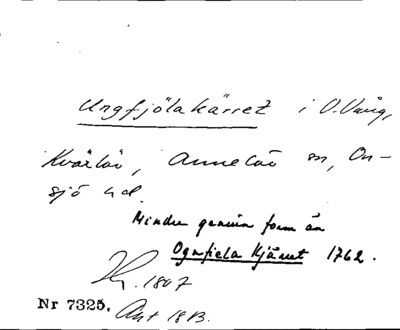 Ungfjölakärret i O. Vång,
Kvärlöv, Annelöv sn, On-
sjö hd.
Mindre genuin form än
Ognfiela Kjärret 1762.
1807
Nr 7325. Ant 1813.